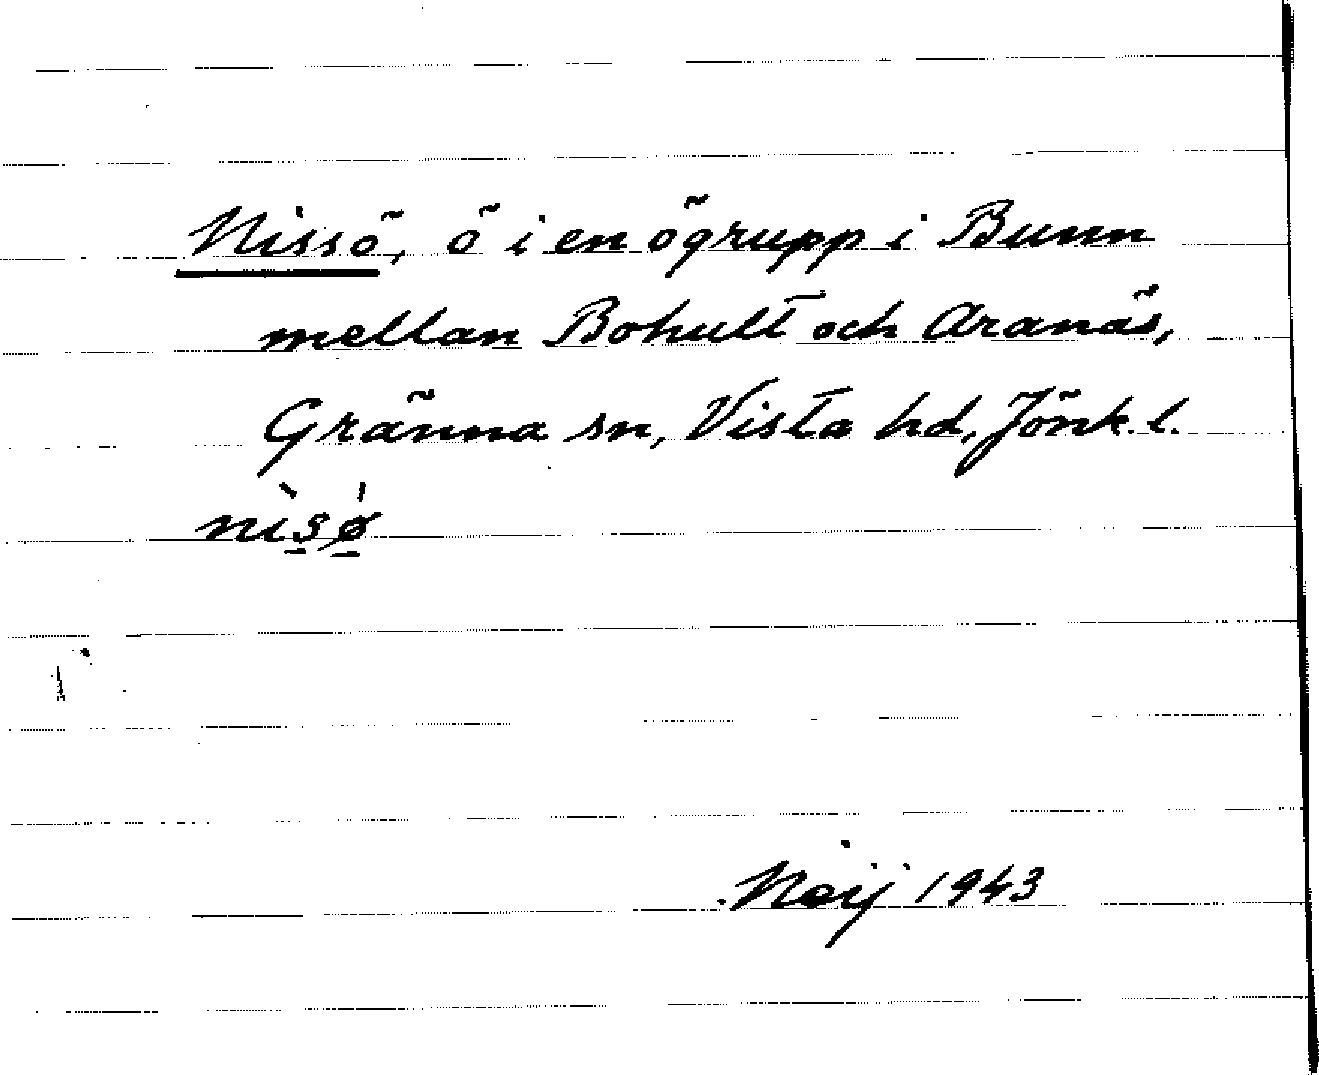 Nissö, ö i en ögrupp i Bunn
mellan Bohult och Aranäs,
Gränna sn, Vista hd, Jönk. l.
nìs̱ǿ̱
Noij 1943